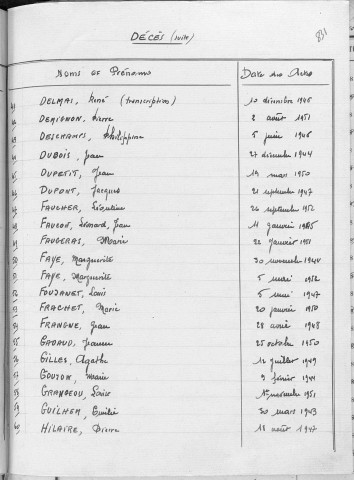 DÉCÈS (suite)
831
Noms et Prénoms Date des Actes
41 DELMAS, René (transcription) 10 décembre 1946
42 DEMIGNON, Pierre 2 août 1951
43 DESCHAMPS, Philippine 5 juin 1946
44 DUBOIS, Jean 27 décembre 1944
45 DUPETIT, Jean 19 mars 1950
46 DUPONT, Jacques 21 septembre 1947
47 FAUCHER, Léontine 24 septembre 1952
48 FAUCON, Léonard, Jean 11 janvier 1945
49 FAUGERAS, Marie 22 janvier 1951
50 FAYE, Marguerite 30 novembre 1944
51 FAYE, Marguerite 5 mai 1952
52 FOUJANET, Louis 5 mai 1947
53 FRACHET, Marie 20 janvier 1950
54 FRANGNE, Jean 28 août 1948
55 GADAUD, 25 octobre 1950
56 GILLES, Agathe 12 juillet 1949
57 GOUJON, Marie 9 février 1941
58 GRANGEOU, 1er novembre 1951
59 GUILHEM, Emilie 30 mars 1943
60 HILAIRE, Pierre 18 août 1947